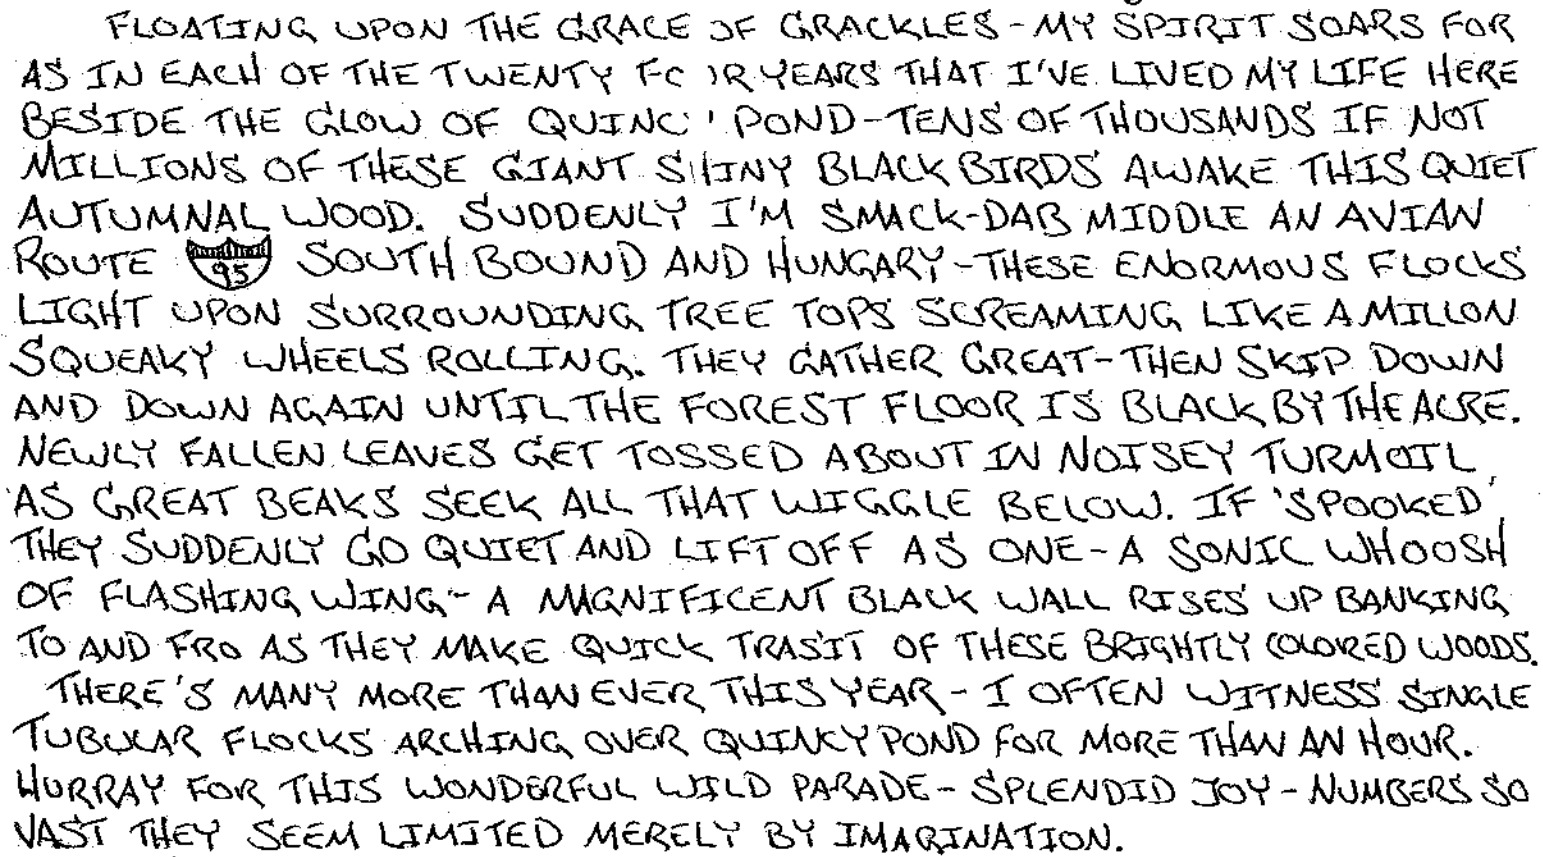 FLOATING UPON THE GRACE OF GRACKLES - MY SPIRIT SOARS FOR
AS IN EACH OF THE TWENTY FOUR YEARS THAT I'VE LIVED MY LIFE HERE
BESIDE THE GLOW OF QUINCY POND - TENS OF THOUSANDS IF NOT
MILLIONS OF THESE GIANT SHINY BLACK BIRDS AWAKE THIS QUIET
AUTUMNAL WOOD. SUDDENLY I'M SMACK-DAB MIDDLE AN AVIAN
ROUTE 95 SOUTH BOUND AND HUNGARY - THESE ENORMOUS FLOCKS
LIGHT UPON SURROUNDING TREE TOPS SCREAMING LIKE A MILLON
SQUEAKY WHEELS ROLLING. THEY GATHER GREAT - THEN SKIP DOWN
AND DOWN AGAIN UNTIL THE FOREST FLOOR IS BLACK BY THE ACRE.
NEWLY FALLEN LEAVES GET TOSSED ABOUT IN NOISEY TURMOIL
AS GREAT BEAKS SEEK ALL THAT WIGGLE BELOW. IF 'SPOOKED'
THEY SUDDENLY GO QUIET AND LIFT OFF AS ONE - A SONIC WHOOSH
OF FLASHING WING - A MAGNIFICENT BLACK WALL RISES UP BANKING
TO AND FRO AS THEY MAKE QUICK TRASIT OF THESE BRIGHTLY COLORED WOODS.
THERE'S MANY MORE THAN EVER THIS YEAR - I OFTEN WITNESS SINGLE
TUBULAR FLOCKS ARCHING OVER QUINCY POND FOR MORE THAN AN HOUR.
HURRAY FOR THIS WONDERFUL WILD PARADE - SPLENDID JOY - NUMBERS SO
VAST THEY SEEM LIMITED MERELY BY IMAGINATION.